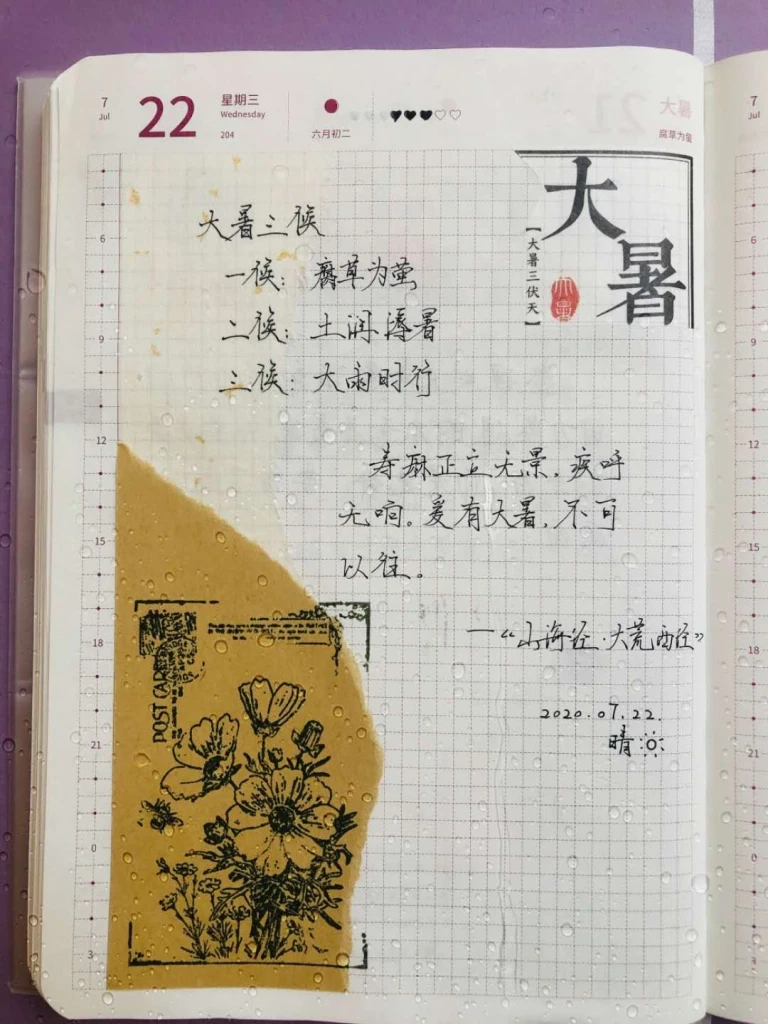 7
Jul
22
星期三
Wednesday
204
六月初二
大暑
腐草为萤
7
Jul
大暑
【大暑三伏天】
大暑
大暑三候
一候：腐草为萤
二候：土润溽暑
三候：大雨时行
寿麻正立无景，疾呼
无响。爰有大暑，不可
以往。
—“山海经·大荒西经”
2020.07.22.
晴
POST CARD
6
9
12
15
18
21
0
3
6
9
12
15
18
21
0
3